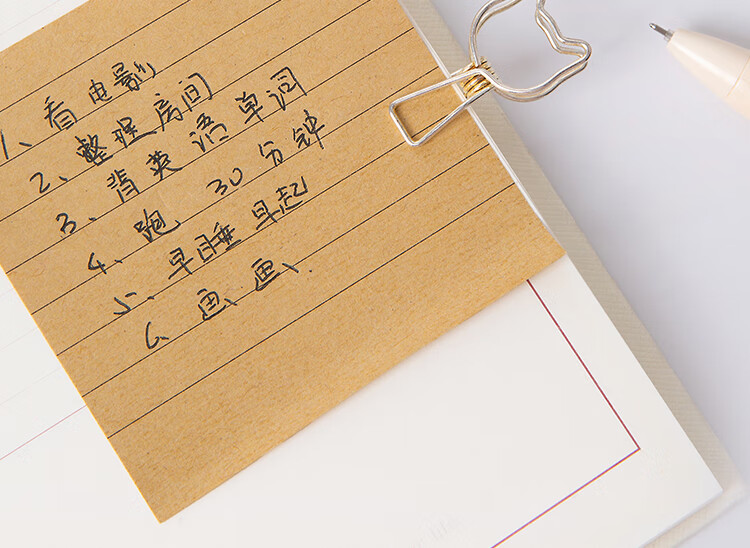 1、看电影
2、整理房间
3、背英语单词
4、跑 30分钟
5、早睡早起
6、画画、